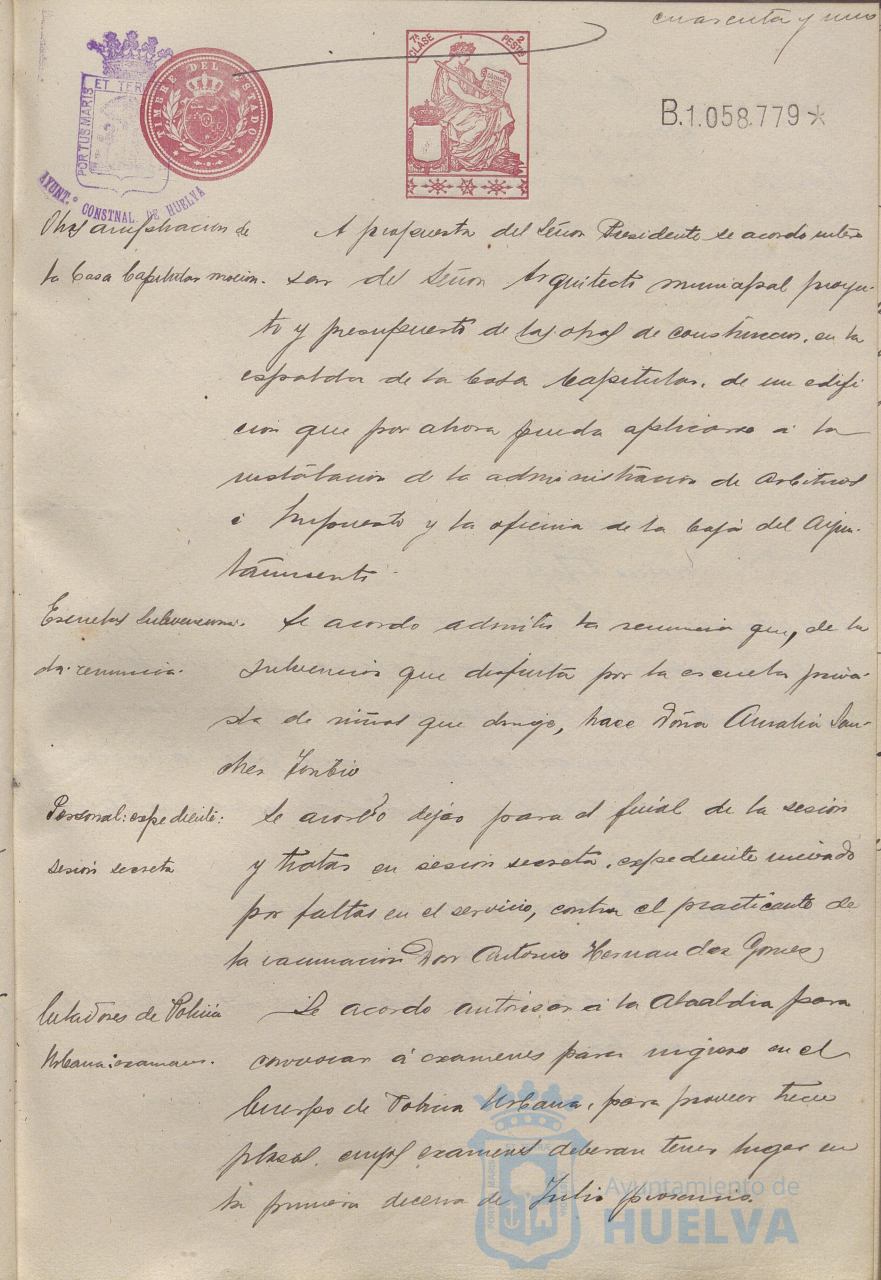 cuarenta y uno
PORTUS MARIS ET TER
AYUNT.º CONSTNAL. DE HUELVA
TIMBRE DEL ESTADO
7ª CLASE 2 PESTS
B.1.058.779*
Obras ampliacion de
la Casa Capitular mocion.
A propuesta del Señor Presidente se acordo intere
sar del Señor Arquitecto municipal proyec-
to y presupuesto de las obras de construccion, en la
espalda de la Casa Capitular, de un edifi
cion que por ahora pueda aplicarse a la
instalacion de la administracion de arbitrios
é Impuesto y la oficina de la Caja del Ayun-
tamiento.
Escuelas subvenciona-
da: renuncia.
Se acordo admitir la renuncia que, de la
subvencion que disfruta por la escuela priva-
da de niños que dirije, hace Doña Amalia San-
chez Toribio
Personal: expediente:
sesion secreta
Se acordo dejar para el final de la sesion
y tratar en sesion secreta, expediente incoado
por faltas en el servicio, contra el practicante de
la vacunacion Don Antonio Hernandez Gomez
Celadores de Policia
Urbana: examenes.
Se acordo autorisar a la Alcaldia para
convocar á examenes para ingreso en el
Cuerpo de Policia Urbana, para proveer trece
plasas, cuyos examenes deberan tener lugar en
la primera decena de Julio proximo.
Ayuntamiento de
HUELVA